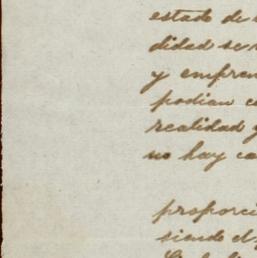 estado de
didad se
y empren
podian c
realidad y
no hay ca
proporci
siendo el